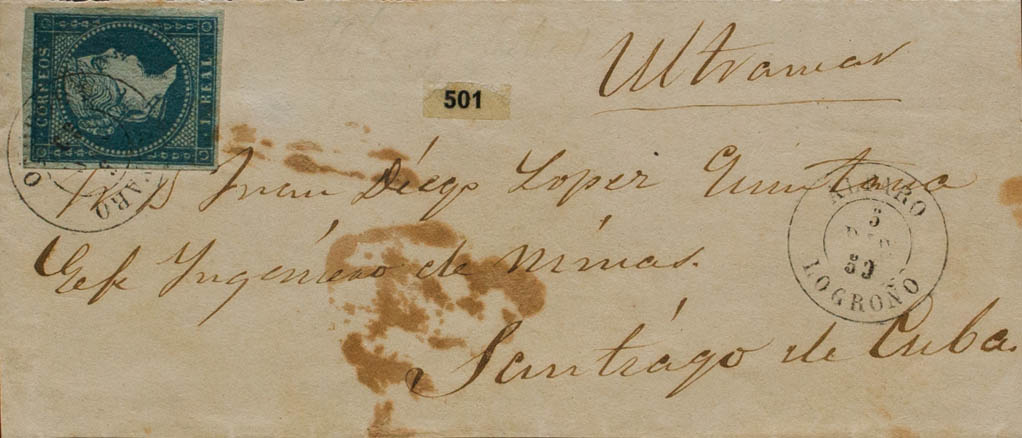 CORREOS
1. REAL.
501
Ultramar
Juan Diégo Lopez Quintana
Gefe Yngéniero de Minas.
Santiágo de Cuba.
ALFARO
5
DIC
LOGROÑO